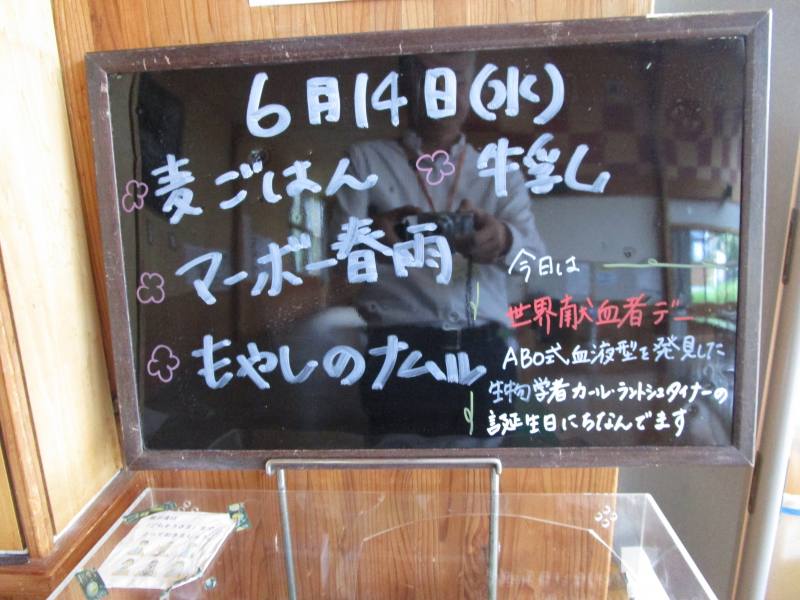 6月14日(水)
麦ごはん 牛乳
マーボー春雨
もやしのナムル
今日は
世界献血者デー
ABO式血液型を発見した
生物学者カール・ラントシュタイナーの
誕生日にちなんでます